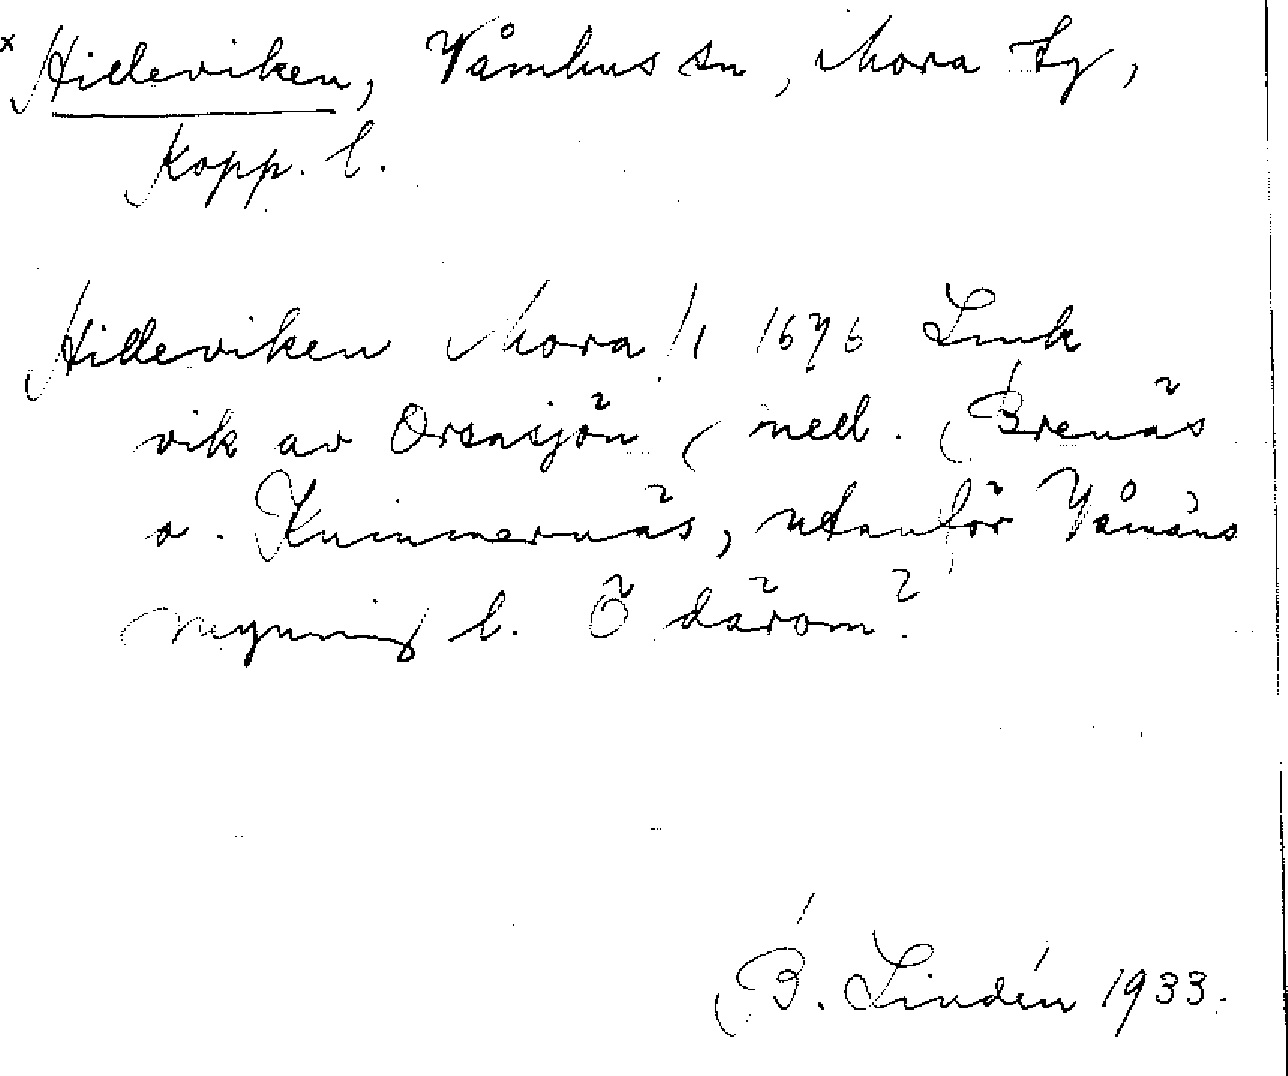 x Hilleviken, Våmhus sn, Mora tg,
Kopp. l.
Hilleviken Mora 1/1 1676 Lmk
vik av Orsasjön, mell. Brenäs
o. Kummernäs, utanför Våmåns
mynning l. Ö därom?
B. Lindén 1933.